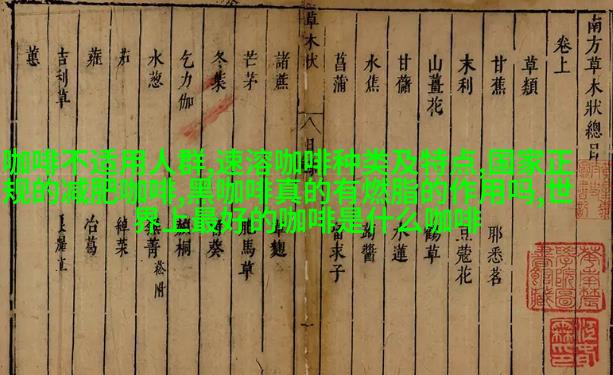 咖啡不适用人群,速溶咖啡种类及特点,国家正
规的减肥咖啡,黑咖啡真的有燃脂的作用吗,世
界上最好的咖啡是什么咖啡
南方草木狀總目
卷上
草類
甘蕉 耶悉茗
末利 蔻花
山薑花 草
甘藷 水蓮
水蕉 醬
菖蒲 求子
草木狀 八
諸蔗
芒茅 馬草
冬葉 葵
乞力伽 桐
水葱 菁 菘附
茄 綽菜
蕹 冶葛
吉利草
蕙